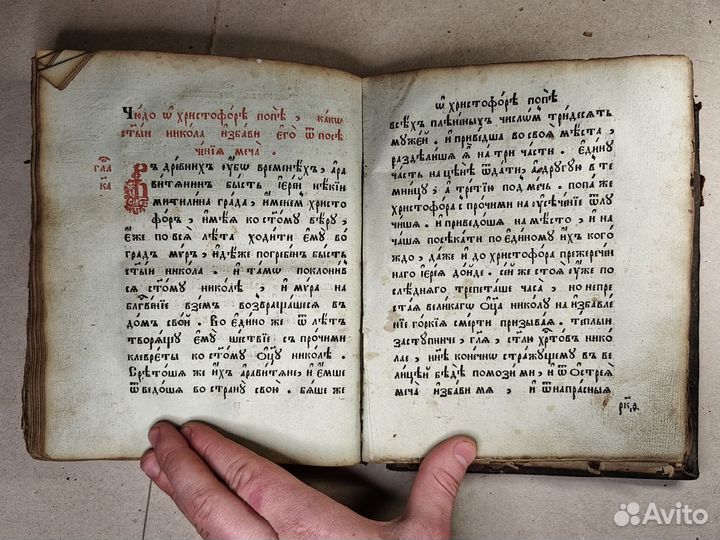 Чю́до ѿ христофо́рѣ попѣ̀, ка́кѡ
ст҃ы́и никола̀ и҆зба́ви є҆го̀ ѿ посѣ
че́нїѧ меча̀.
гла
к҃а
Въ дре́внихъ ᲂу҆́бѡ временѣ́хъ, а҆ра
витѧ́нинъ бы́сть і҆ере́и нѣ́кїи
митили́на гра́да, и҆́менемъ христо
фо́ръ, и҆мѣ́ѧ ко ст҃о́му вѣ́ру,
є҆́же по всѧ̀ лѣ́та ходи́ти є҆му̀ во
гра́дъ мѵ́ръ, и҆дѣ́же погребе́нъ бы́сть
ст҃ы́и никола̀. и҆ та́мѡ поклони́в
сѧ ст҃о́му нико́лѣ, и҆ мѵ́ра на
блгⷭ҇ве́нїе взе́мъ возвраща́шесѧ въ
до́мъ сво́й. Во є҆ди́но же ѿ лѣ́тъ
творѧ́щу є҆му̀ ше́ствїе съ про́чими
клевре́ты ко ст҃о́му ѻ҆ц҃у̀ нико́лѣ.
Срѣто́ша же и҆́хъ а҆равитѧ́не, и҆ є҆́мше
ѿведо́ша во страну̀ свою̀. бѧ́ше же
ѿ христофо́рѣ попѣ̀
всѣ́хъ плѣне́ныхъ число́мъ три́десѧть
муже́й. и҆ приве́дша во своѧ̀ мѣ́ста,
раздѣли́шѧ ѧ҆̀ на трѝ ча́сти. є҆ди́ну
ча́сть на цѣнѣ̀ ѿда́ти, а҆ другу́ю в те
мни́цу, а҆ тре́тїю под ме́чь. попа́ же
христофо́ра с про́чими на ᲂу҆сѣче́нїе ѿлу
чи́шѧ. и҆ приведо́ша на мѣ́сто, и҆ на
ча́шѧ посѣка́ти по є҆ди́ному и҆́хъ кого́
ждо, да́же и҆ до христофо́ра пререче́н
наго і҆ере́ѧ до́йде. се́й же стоѧ̀ ᲂу҆́же по
слѣ́днѧго трепета́ше часа̀, но непре
ста́ѧ вели́кагѡ ѻ҆ц҃а̀ нико́лу на и҆збавле́
нїе го́ркїѧ сме́рти призыва́ѧ. те́плыи
засту́пниче, гл҃ѧ, ст҃лю хрⷭ҇то́въ нико
лае, нн҃ѣ коне́чнѡ стра́жущему въ ве
ли́цей бѣдѣ̀ помозѝ ми, и҆ ѿ ѻ҆́стреѧ
меча̀ и҆зба́ви мѧ̀, и҆ ѿ напра́сныѧ
рк҃ѳ.
Avito